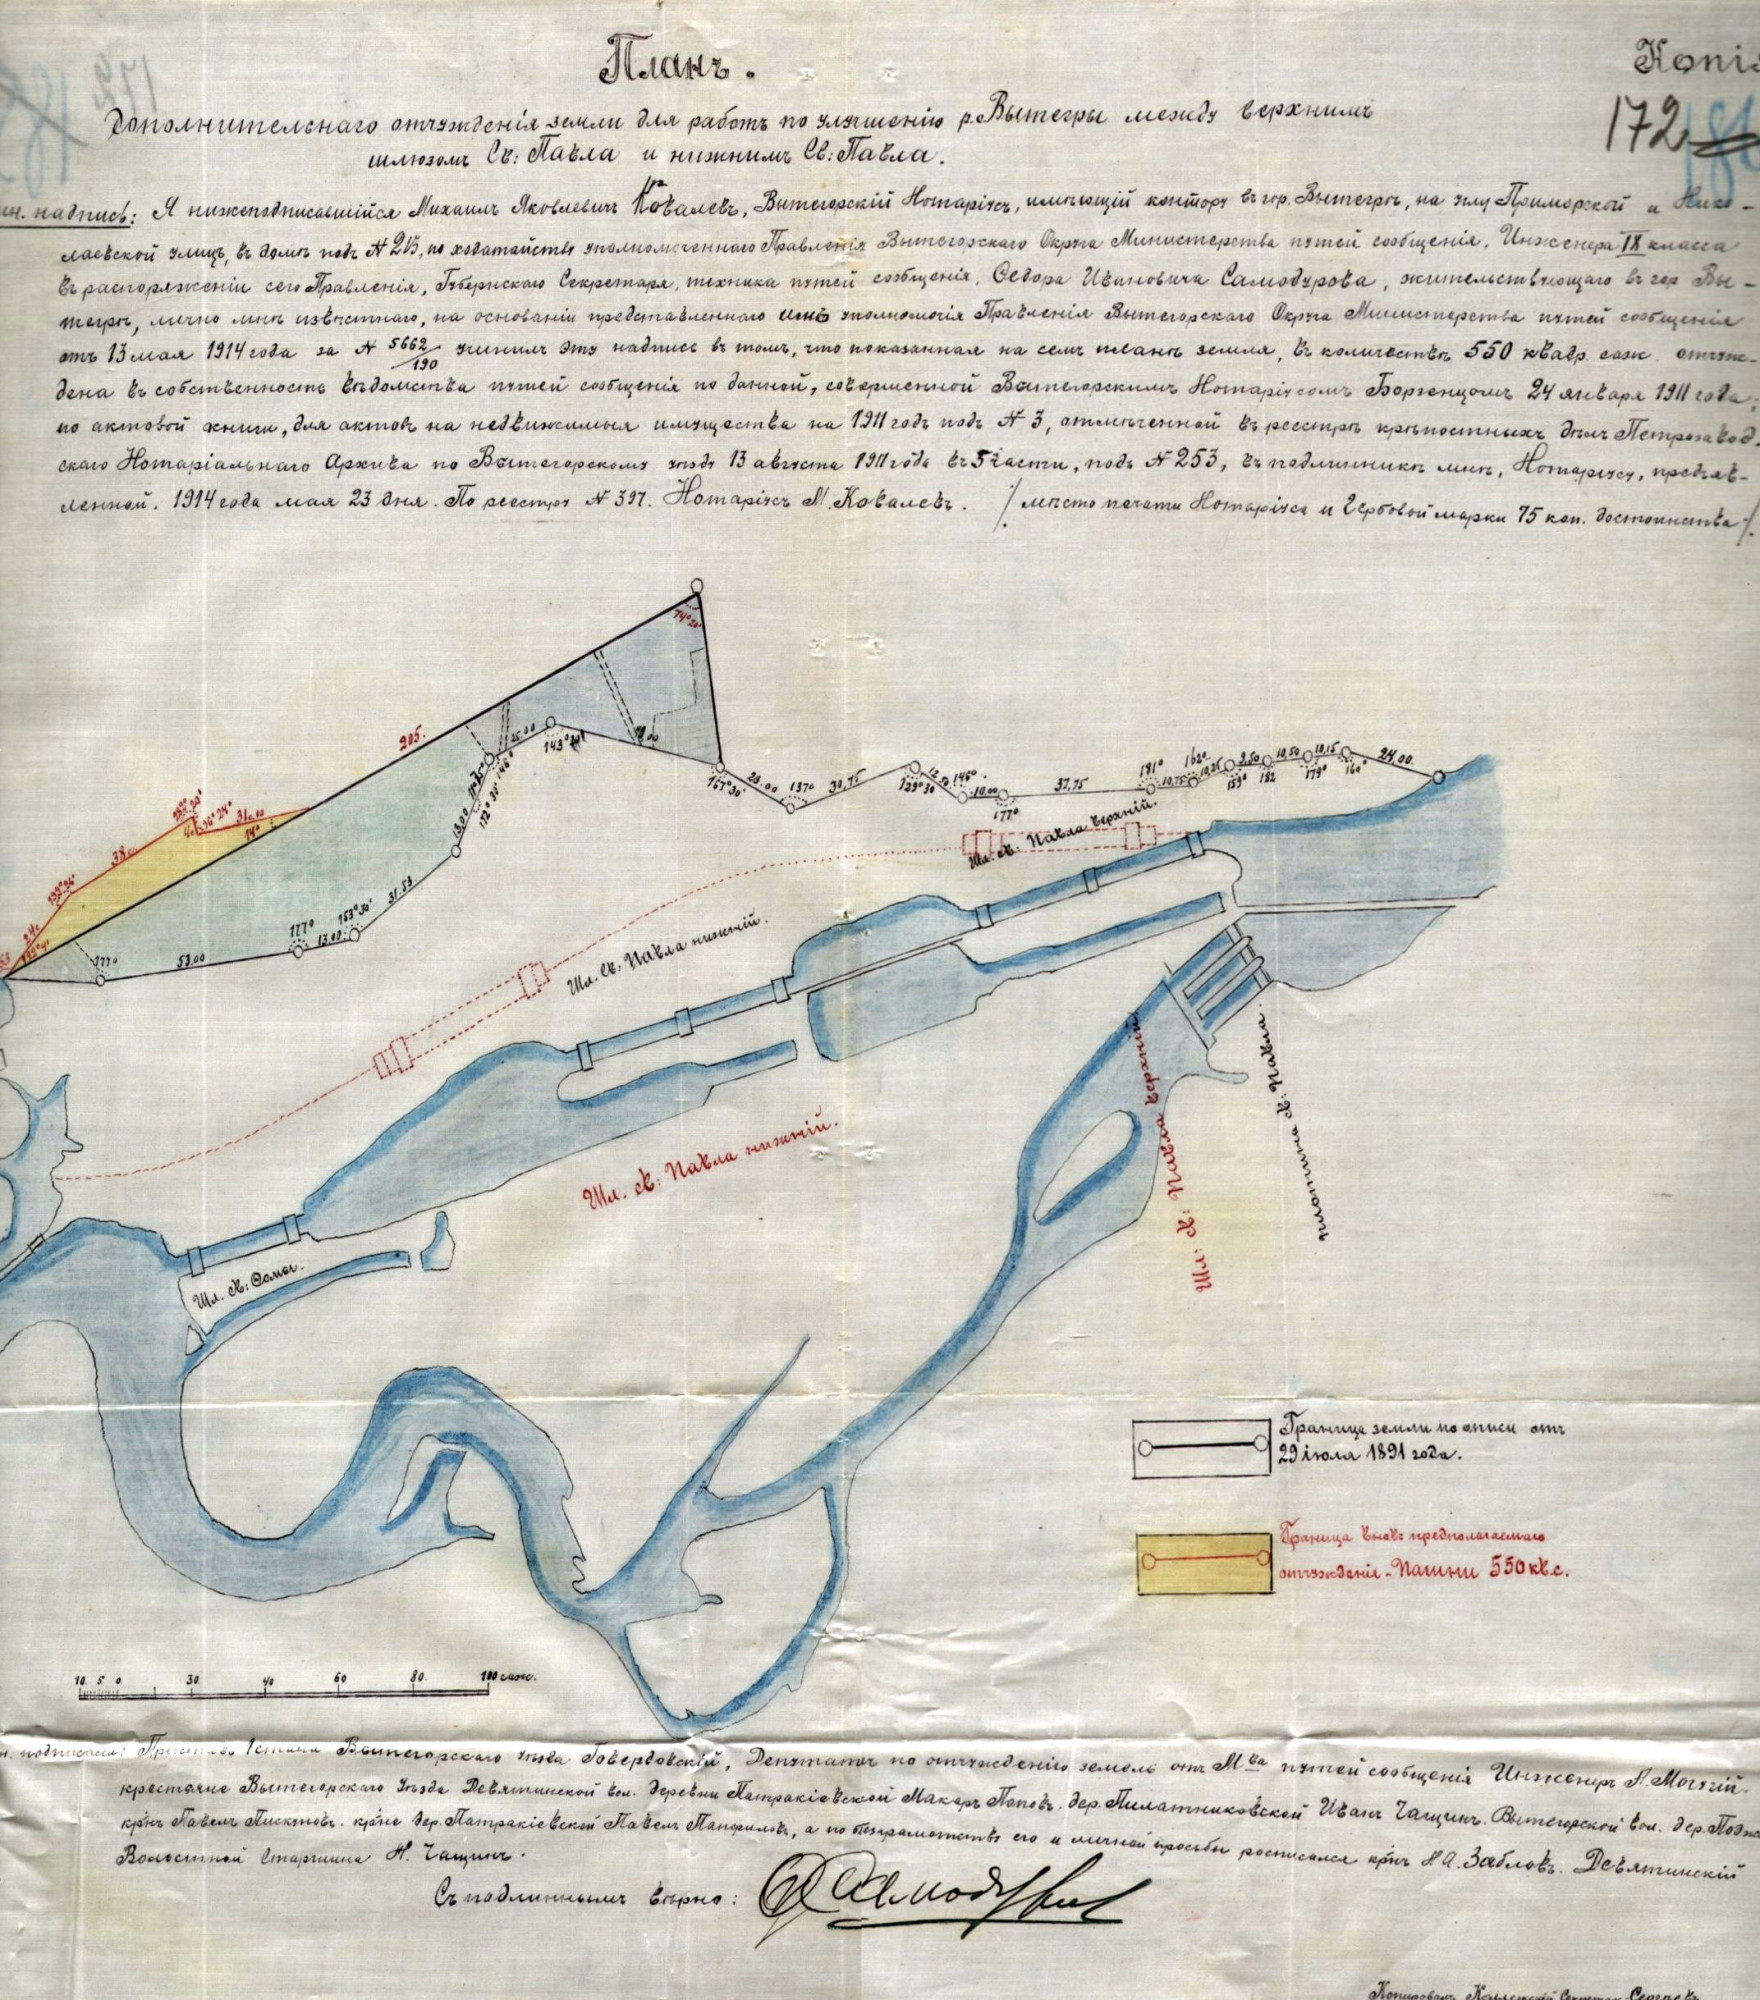 Планъ.
Копія
172
Дополнительнаго отчужденія земли для работъ по улучшенію р. Вытегры между верхнимъ
шлюзомъ Св: Павла и нижнимъ Св: Павла.
надпись: Я нижеподписавшійся Михаилъ Яковлевичъ Ковалевъ, Вытегорскій Нотаріусъ, имѣющій контору въ гор. Вытегрѣ, на углу Приморской и Нико-
лаевской улицъ, въ домѣ подъ № по ходатайству уполномоченнаго Правленія Вытегорскаго Округа Министерства путей сообщенія, Инженера IX класса
въ распоряженіи сего Правленія, Губернскаго Секретаря, техника путей сообщенія, Ѳедора Ивановича Самодурова, жительствующаго въ гор Вы-
тегрѣ, лично мнѣ извѣстнаго, на основаніи представленнаго имъ уполномочія Правленія Вытегорскаго Округа Министерства путей сообщенія
отъ 13 мая 1914 года за № 5662/190 учинилъ эту надпись въ томъ, что показанная на семъ планѣ земля, въ количествѣ 550 квадр. саж. отчуж-
дена въ собственность вѣдомства путей сообщенія по данной, совершенной Вытегорскимъ Нотаріусомъ 24 января 1911 года,
по актовой книги, для актовъ на недвижимыя имущества на 1911 годъ подъ № 3, отмѣченной въ реестрѣ крѣпостныхъ дѣлъ Петрозавод-
скаго Нотаріальнаго Архива по Вытегорскому уѣзду 13 августа 1911 года въ 5 части, подъ № 253, въ подлинникѣ мнѣ, Нотаріусу, предъяв-
ленной. 1914 года мая 23 дня. По реестру № 397. Нотаріусъ М. Ковалевъ. /мѣсто печати Нотаріуса и Гербовой марки 75 коп. достоинства/.
74°20'
205.
25.00
143°
146°
172°30'
13,00
167°30'
23.00
137°
30,75
129°30
12,50
146°
10.00
177°
37,75
181°
10,75
162°
159°
9,50
182
10,50
179°
10,15
160°
24,00.
38
24
31,00
14°
31.53
153°30'
13,00
177°
53,00
177°
Шл. Св. Павла верхній.
Шл. Св: Павла нижній.
Шл. Св: Павла нижній.
Шл: Св: Павла верхній
плотина Св: Павла.
Шл. Св: Ѳомы.
Граница земли по описи отъ
29 іюля 1891 года.
Граница вновь предполагаемаго
отчужденія - Пашни 550 кв.с.
10. 5 0. 30. 40 60 80. 100 саж.
подписали: Приставъ 1 стана Вытегорскаго уѣзда Депутатъ по отчужденію земель отъ М-ва путей сообщенія Инженеръ
крестьяне Вытегорскаго Уѣзда Девятинской вол. деревни Патракіевской Макаръ Поповъ. дер. Пилатниковской Иванъ Чащинъ. Вытегорской вол. дер.
кр-нъ Павелъ Пискуновъ. кр-нъ дер. Патракіевской Павелъ Панфиловъ, а по безграмотству его и личной просьбы росписался кр-нъ Н.А. Забловъ. Девятинскій
Волостной Старшина Н. Чащинъ.
Съ подлиннымъ вѣрно: Самодуровъ
Копировалъ Сергѣевъ